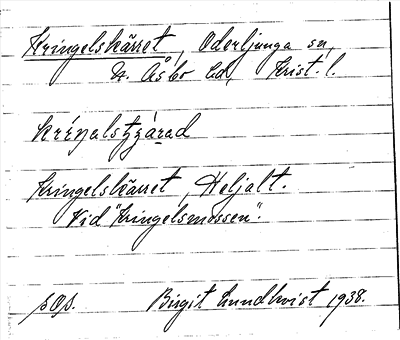 Kringelskärret, Oderljunga sn,
N. Åsbo hd, Krist. l.
Kringelskärret, Heljalt.
Vid "Kringelsmossen".
pop. Birgit Lundkvist 1938.